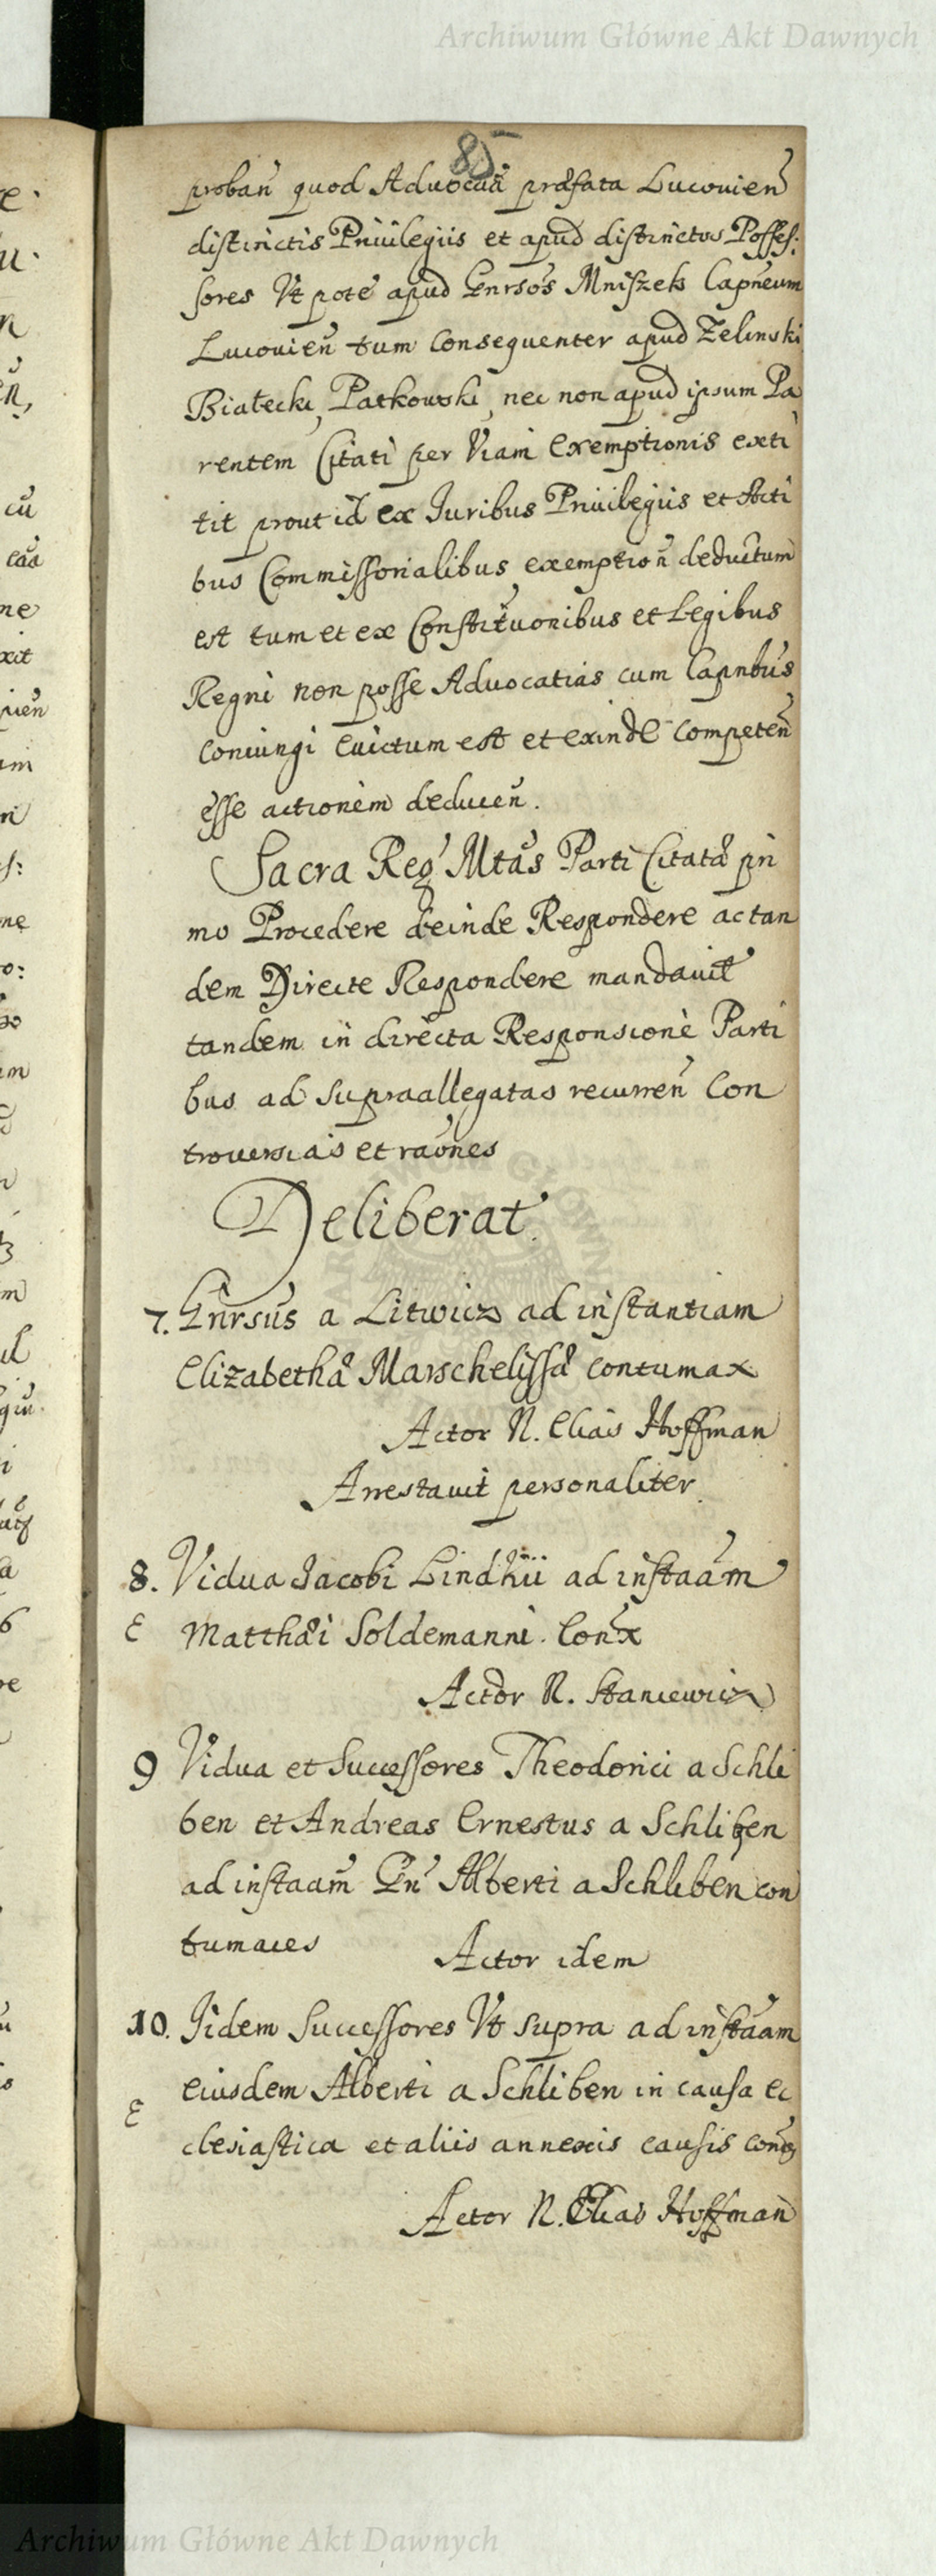 Archiwum Główne Akt Dawnych
85
proban̄ quod Aduocaā præfata Lucouien̄
distinctis Priuilegiis et apud distinctos Posses:
sores Vt pote apud Gnrsos Mniszek Capneum
Lucouien̄ tum Consequenter apud Zelinski
Białecki, Patkowski, nec non apud ipsum Pa
rentem Citati per Viam Exemptionis exti
tit prout id ex Iuribus Priuilegiis et Acti
bus Commissorialibus exemption̄ deductum
est tum et ex Constitūonibus et Legibus
Regni non posse Aduocatias cum Capnbus
Coniungi Euictum est et exinde competen̄
esse actionem deducen̄.
Sacra Reg Mtās Parti Citatæ pri
mo Procedere deinde Respondere ac tan
dem Directe Respondere mandauit
tandem in directa Responsione Parti
bus ad supraallegatas recurren̄ Con
trouersias et raōnes
Deliberat.
7. Gnrsus a Litwicz ad instantiam
Elizabethæ Marschelissæ contumax
Actor N. Elias Hoffman
Arrestauit personaliter
8. Vidua Jacobi Lindhii ad instaām
E Matthæi Soldemanni. Con̄x
Actor N. Staniewicz
9 Vidua et Successores Theodorici a Schli
ben et Andreas Ernestus a Schliben
ad instaam̄ Gn̄ Alberti a Schliben con
tumaces Actor idem
10. Iidem Successores Vt supra ad instāam
eiusdem Alberti a Schliben in causa ec
E
clesiastica et aliis annexis causis
Actor N. Elias Hoffman
Archiwum Główne Akt Dawnych